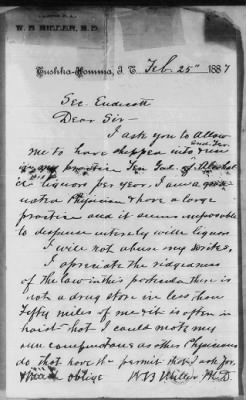 W. B. MILLER, M. D.
Tushka-Homma, I. T. Feb. 25" 1887
Sec. Endicott
Dear Sir—
I ask you to allow
me to have shipped into
in my practice Ten Gal. of Alcohol
liquors per year. I am a
Physician & have a large
practice and it seems impossible
to despense intirely with liquors
I will not abuse my
I apreciate the ridgedness
of the law in this particular there is
not a drug store in less than
Fifty miles of me & it is often in
that I could make my
own as other Physicians
do that have the permit that I ask for
& oblige W B Miller M.D.